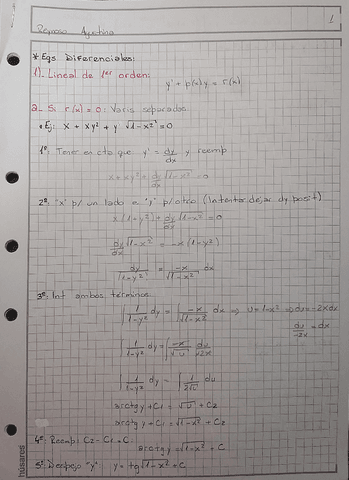 1
Reinoso Agustina
* Eqs Diferenciales:
1)- Lineal de 1er orden:
y' + p(x)y = r(x)
2- Si r(x) = 0: Varis separadas
* Ej: x + xy² + y' √1-x² = 0
1º: Tener en cta que y' = dy/dx y reemp
x + xy² + dy/dx √1-x² = 0
2º: "x" p/ un lado e "y" p/ otro (Intentar dejar dy posit)
x(1+y²) + dy/dx √1-x² = 0
dy/dx √1-x² = -x(1+y²)
dy/(1+y²) = -x/√1-x² dx
3º: Int ambos términos:
∫ 1/1-y² dy = ∫ -x/√1-x² dx ⇒ u = 1-x² ⇒ du = -2xdx
du/-2x = dx
∫ 1/1-y² dy = ∫ -x/√u du/-2x
∫ 1/1-y² dy = ∫ 1/2√u du
arctg y + C1 = √u + C2
arctg y + C1 = √1-x² + C2
4º: Reemp: C2 - C1 = C
arctg y = √1-x² + C
5º: Despejo "y": y = tg √1-x² + C
húsares